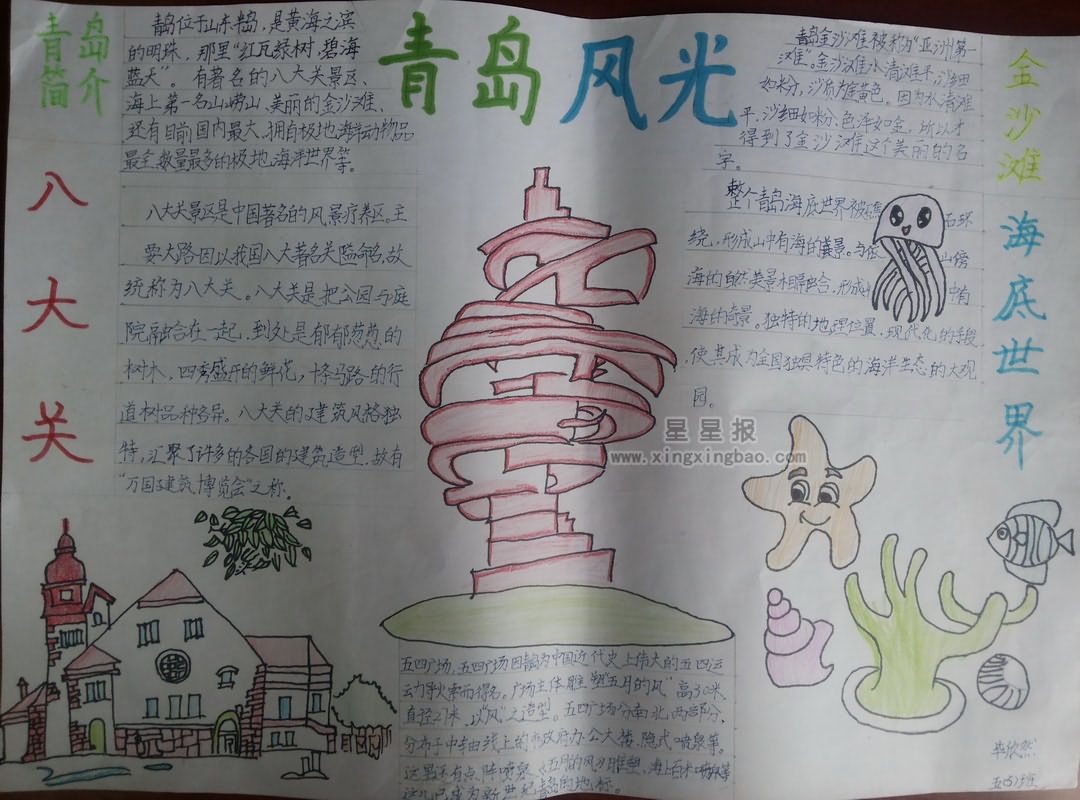 青岛风光
青岛
简介
青岛位于山东半岛，是黄海之滨
的明珠，那里“红瓦绿树，碧海
蓝天”。有著名的八大关景区、
海上第一名山崂山、美丽的金沙滩、
还有目前国内最大、拥有极地海洋动物品
最全、数量最多的极地海洋世界等。
八大关
八大关景区是中国著名的风景疗养区。主
要大路因以我国八大著名关隘命名，故
统称为八大关。八大关是把公园与庭
院融合在一起，到处是郁郁葱葱的
树木，四季盛开的鲜花，十条马路的行
道树品种各异。八大关的建筑风格独
特，汇聚了许多的各国的建筑造型，故有
“万国建筑博览会”之称。
金沙滩
青岛金沙滩被称为“亚洲第一
滩”。金沙滩水清滩平，沙细
如粉，沙质为金黄色。因为水清滩
平，沙细如粉、色泽如金，所以才
得到了金沙滩这个美丽的名
字。
海底世界
整个青岛海底世界被 石环
绕，形成山中有海的 景。与依 山傍
海的自然美景相融合，形成 中有
海的奇景。独特的地理位置、现代化的手段
使其成为全国独具特色的海洋生态的大观
园。
星星报
www.xingxingbao.com
五四广场，五四广场因青岛为中国近代史上伟大的五四运
动导火索而得名。广场主体雕塑“五月的风”高30米
直径27米，以“风”之造型。五四广场分南北两部分，
分布于中轴线上的市政府办公大楼、隐式喷泉等。
这里还有点阵喷泉、《五月的风》雕塑、海上百米喷泉等
这儿已成为新世纪青岛的地标。
毕欣然